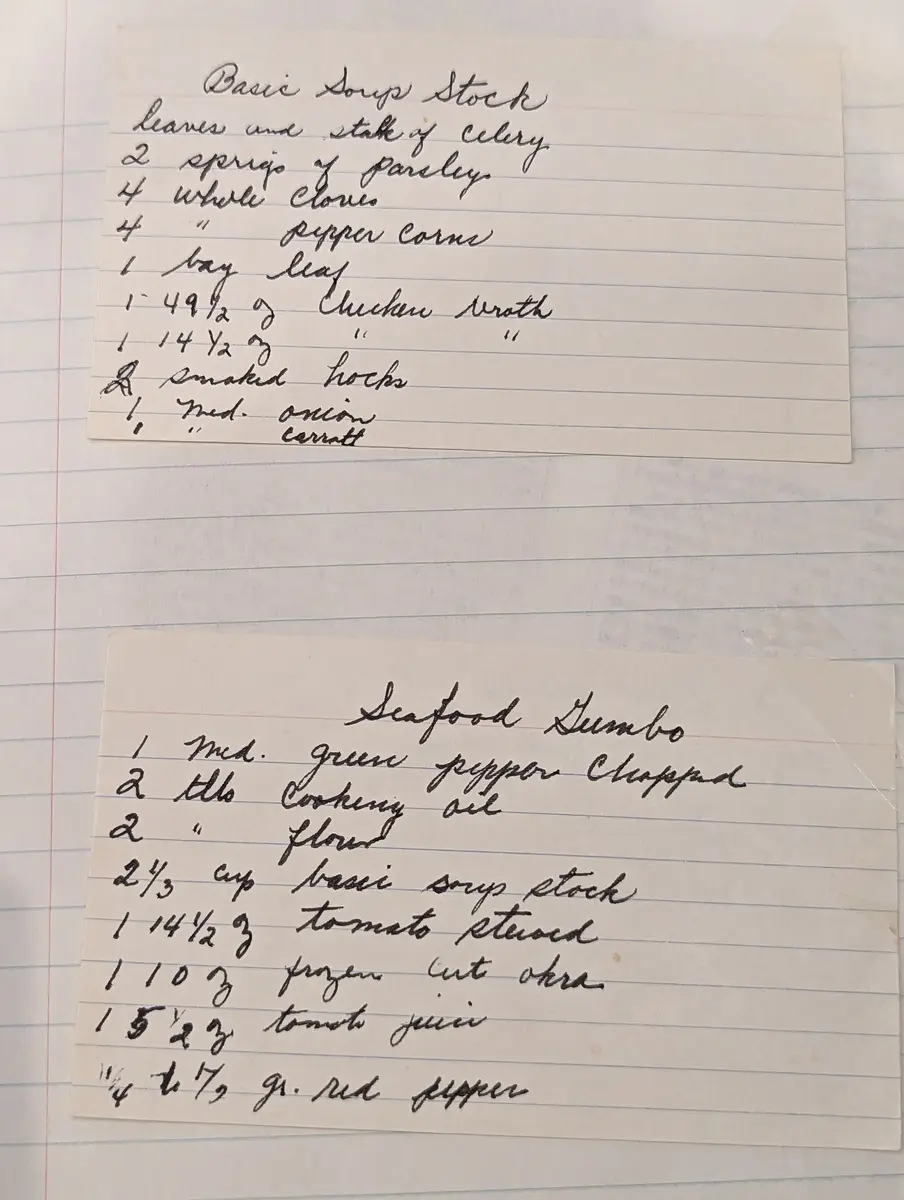 Basic Soup Stock
leaves and stalk of celery
2 sprigs of parsley
4 whole cloves
4 " pepper corns
1 bay leaf
1- 49 1/2 oz chicken broth
1 14 1/2 oz " "
2 smoked hocks
1 med. onion
" " carrott
Seafood Gumbo
1 med. green pepper chopped
2 tbls cooking oil
2 " flour
2 1/3 cup basic soup stock
1 14 1/2 oz tomato stewed
1 10 oz frozen cut okra
1 5 1/2 oz tomato juice
1/4 to 1/2 gr. red pepper